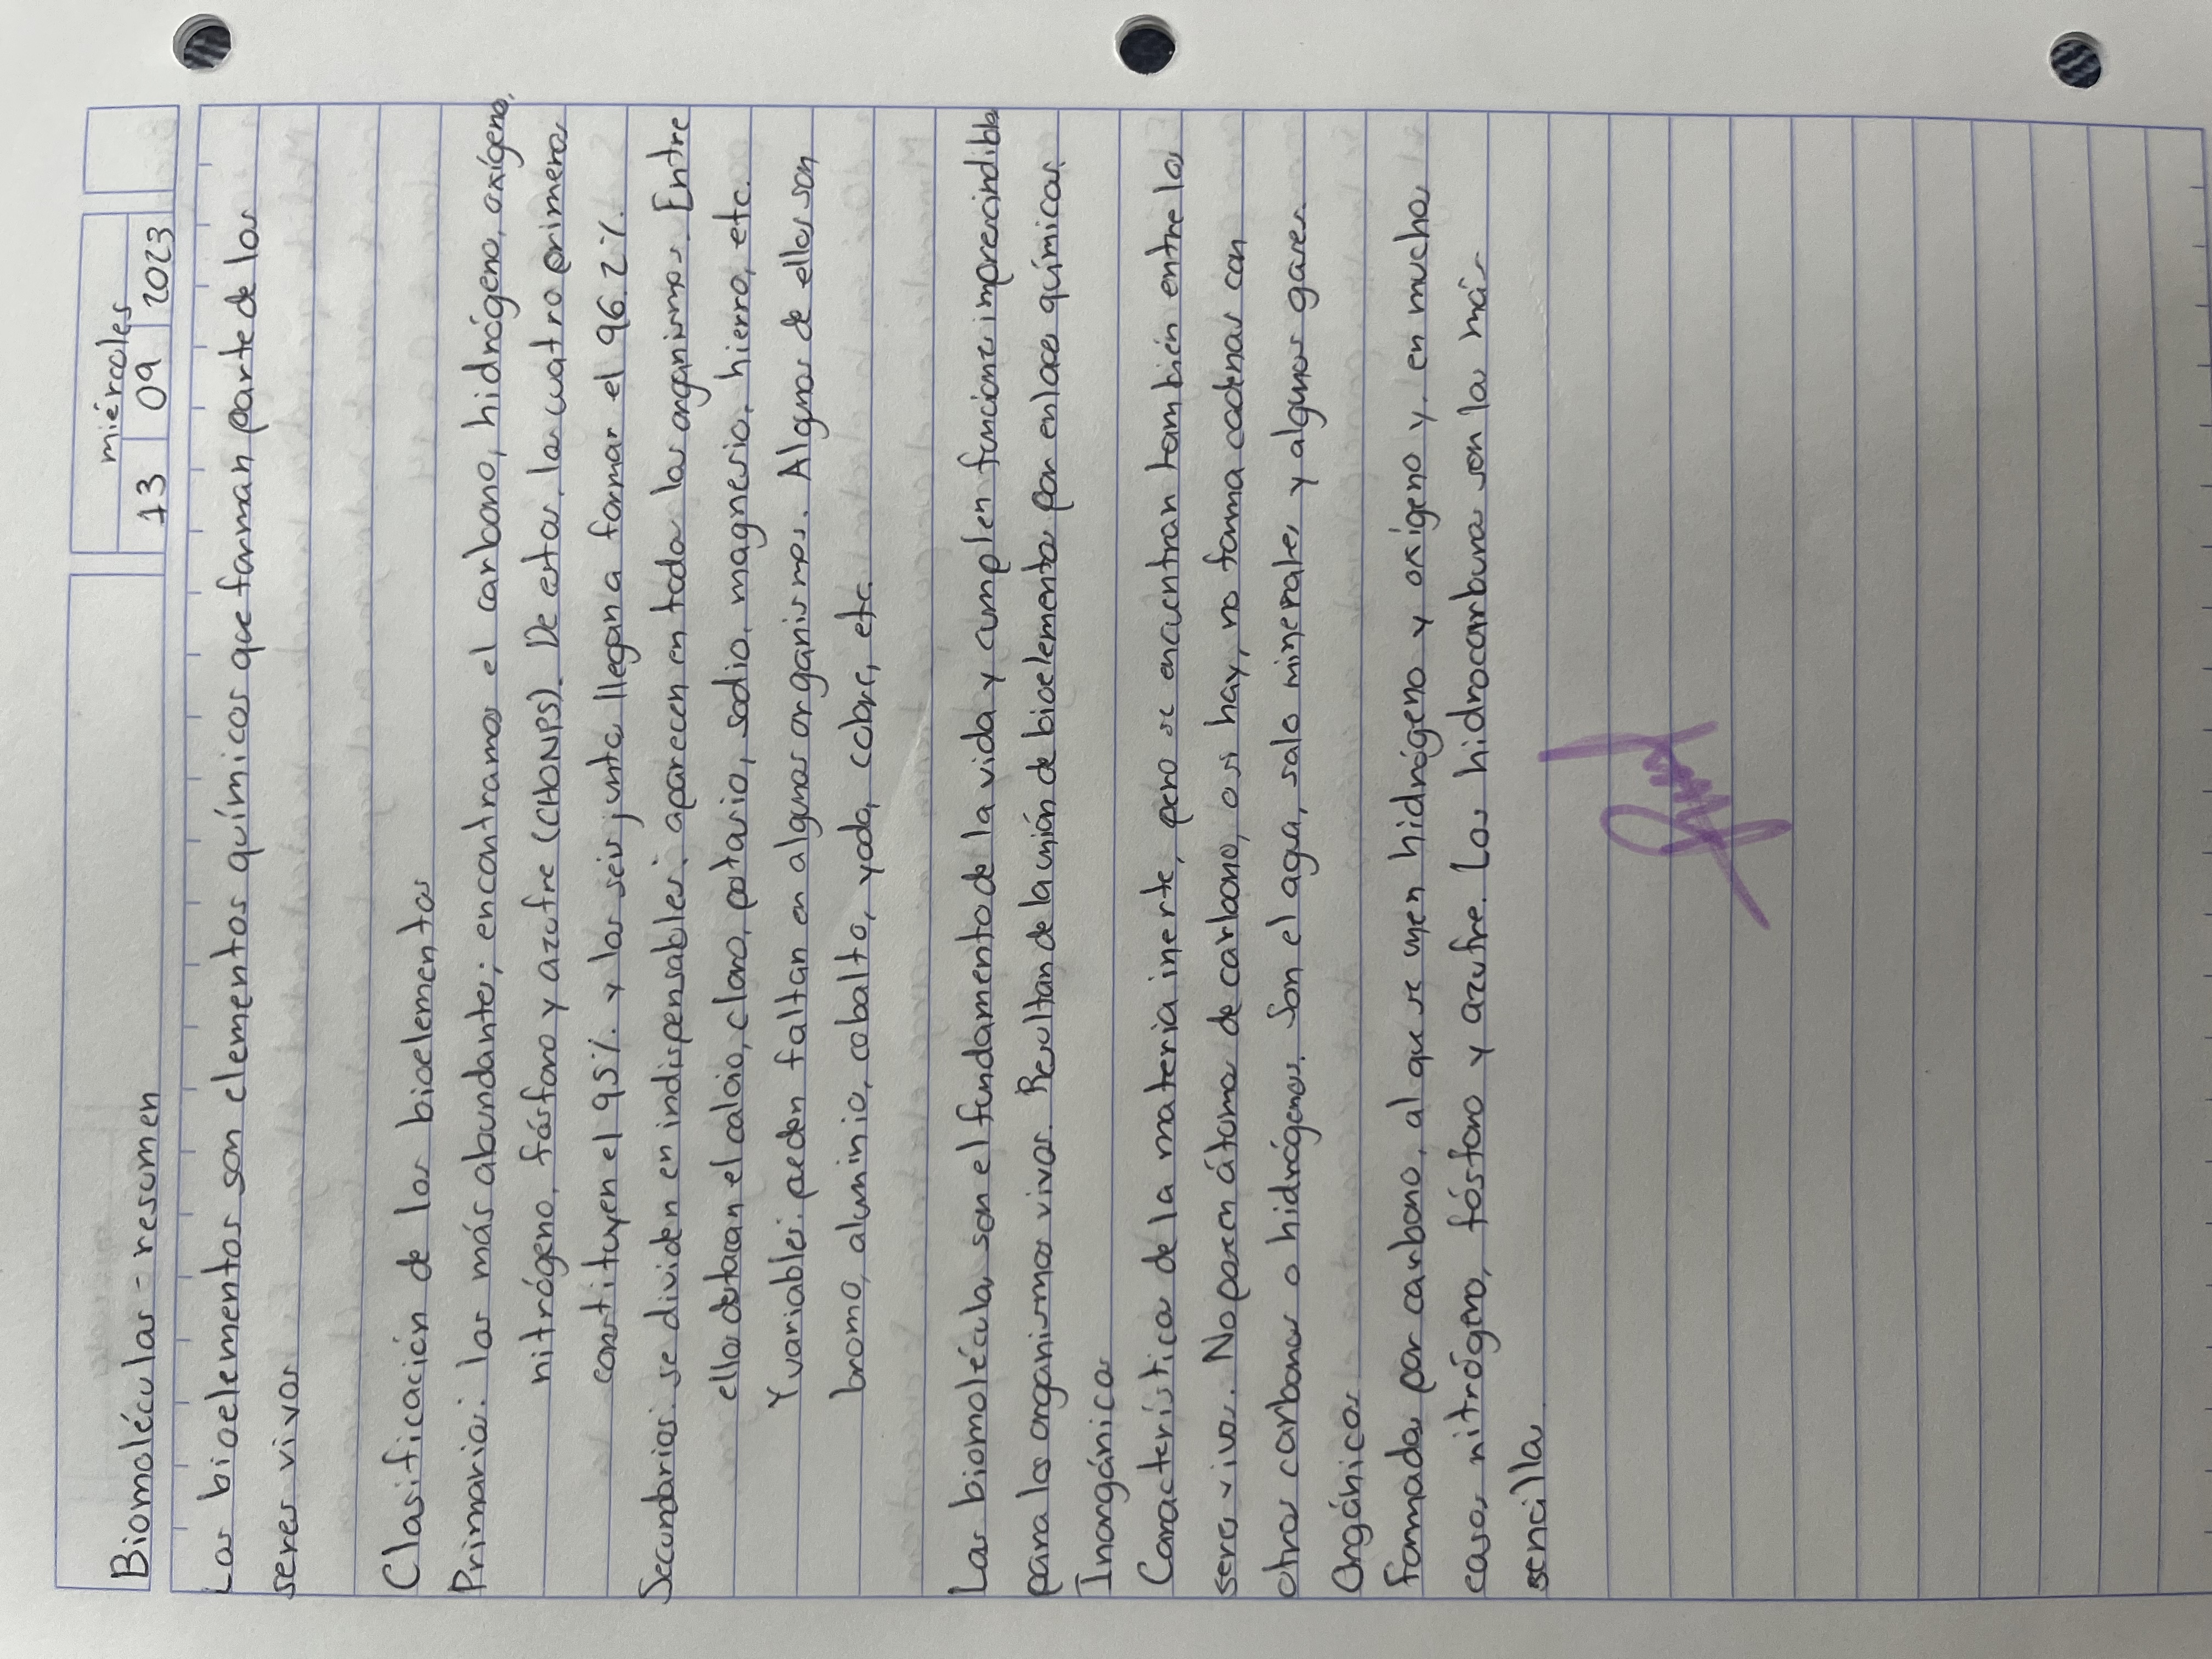 Biomoléculas - resumen
miércoles
13 09 2023
Los bioelementos son elementos químicos que forman parte de los
seres vivos
Clasificación de los bioelementos
Primarios: los más abundantes; encontramos el carbono, hidrógeno, oxígeno,
nitrógeno, fósforo y azufre (CHONPS). De estos, los cuatro primeros
constituyen el 95% y los seis juntos llegan a formar el 96.2%.
Secundarios: se dividen en indispensables: aparecen en todos los organismos. Entre
ellos destacan el calcio, cloro, potasio, sodio, magnesio, hierro, etc.
Y variables: pueden faltan en algunos organismos. Algunos de ellos son
bromo, aluminio, cobalto, yodo, cobre, etc.
Las biomoléculas son el fundamento de la vida y cumplen funciones imprescindibles
para los organismos vivos. Resultan de la unión de bioelementos por enlaces químicos.
Inorgánicas
Características de la materia inerte, pero se encuentran también entre los
seres vivos. No poseen átomos de carbono, o si hay, no forma cadenas con
otros carbonos o hidrógenos. Son el agua, sales minerales y algunos gases.
Orgánicas
Formadas por carbono, al que se unen hidrógeno y oxígeno y, en muchos
casos nitrógeno, fósforo y azufre. Los hidrocarburos son los más
sencillos